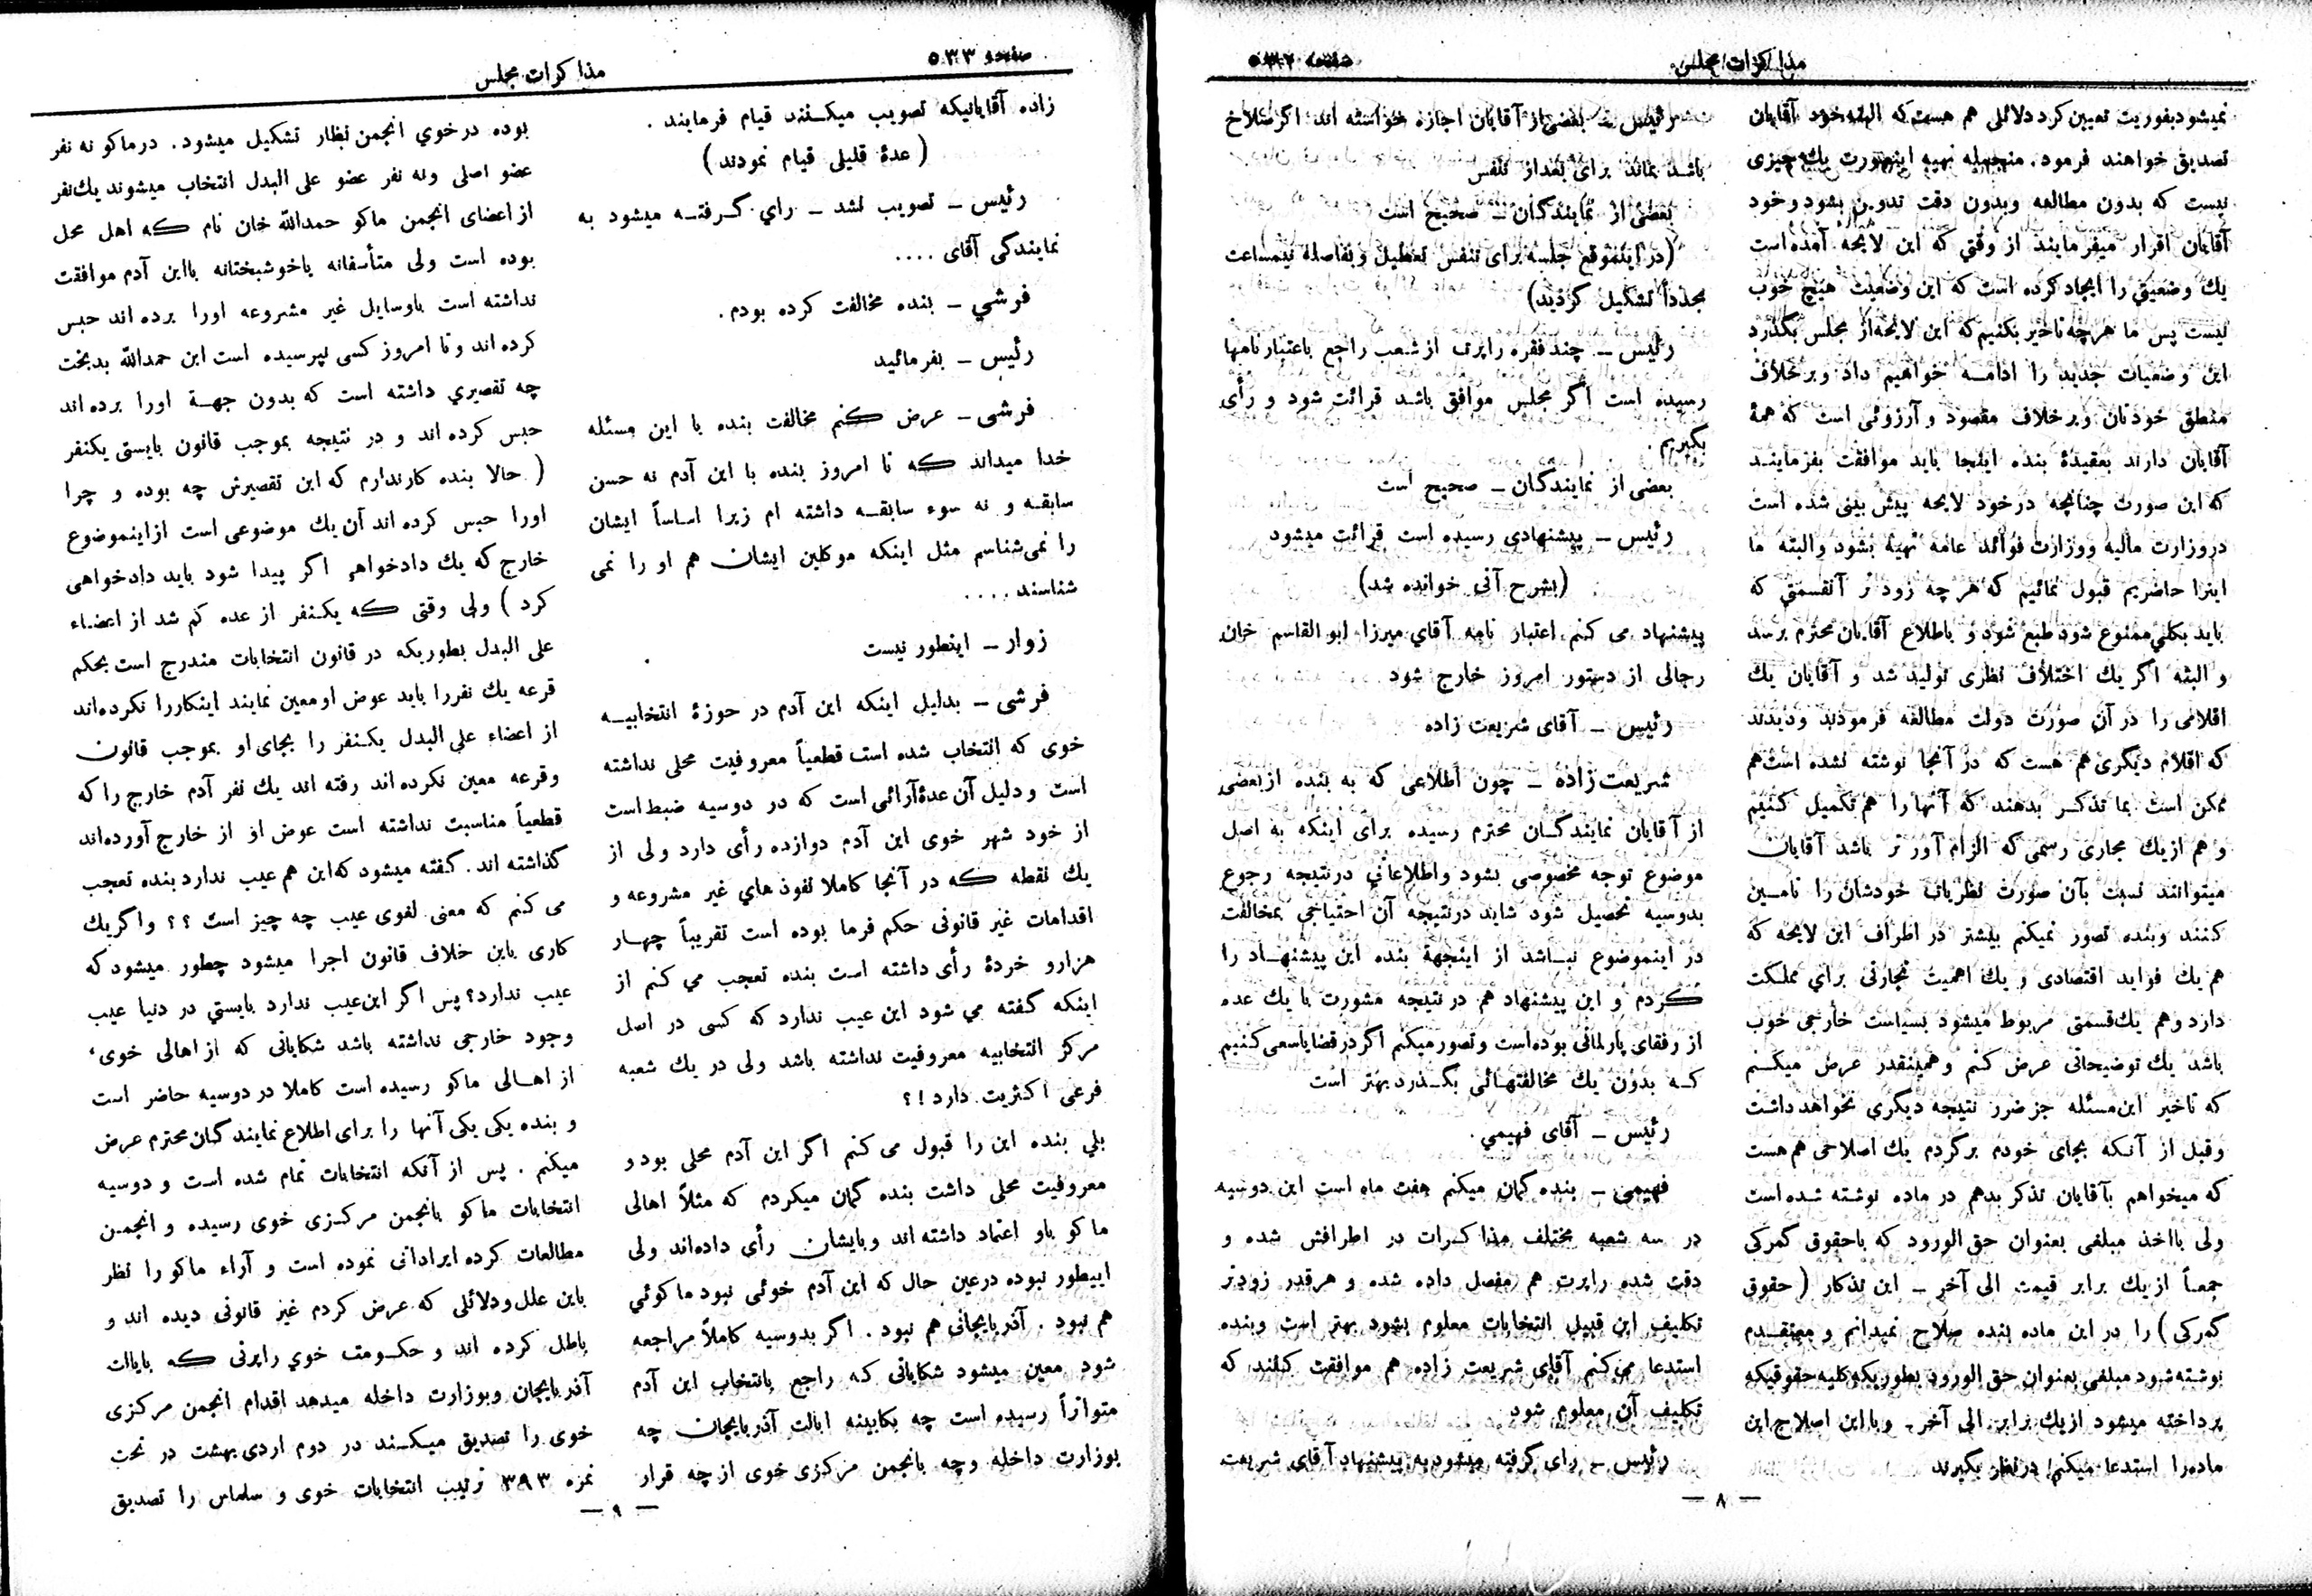 مذاکرات مجلس
صفحه ۵۳۲
نمیشود بفوریت تعیین کرد دلائلی هم هست که البته خود آقایان
تصدیق خواهند فرمود. منجمله تهیه اینصورت یك چیزی
نیست که بدون مطالعه وبدون دقت تدوین بشود و خود
آقایان اقرار میفرمایند از وقتی که این لایحه آمده است
یك وضعیتی را ایجاد کرده است که این وضعیت هیچ خوب
نیست پس ما هرچه تاخیر بکنیم که این لایحه از مجلس بگذرد
این وضعیات جدید را ادامه خواهیم داد و برخلاف
منطق خودتان وبرخلاف مقصود و آرزوئی است که همهٔ
آقایان دارند بعقیدهٔ بنده اینجا باید موافقت بفرمایند
که این صورت چنانچه در خود لایحه پیش بینی شده است
در وزارت مالیه ووزارت فوائد عامه تهیه بشود والبته ما
اینرا حاضریم قبول نمائیم که هرچه زود تر آنقسمتی که
باید بکلی ممنوع شود طبع شود و باطلاع آقایان محترم برسد
و البته اگر یك اختلاف نظری تولید شد و آقایان یك
اقلامی را در آن صورت دولت مطالعه فرمودند ودیدند
که اقلام دیگری هم هست که در آنجا نوشته نشده است هم
ممکن است بما تذکر بدهند که آنها را هم تکمیل کنیم
و هم از یك مجاری رسمی که الزام آور تر باشد آقایان
میتوانند نسبت بآن صورت نظریات خودشان را تامین
کنند وبنده تصور نمیکنم بیشتر در اطراف این لایحه که
هم یك فواید اقتصادی و یك اهمیت تجارتی برای مملکت
دارد وهم یك قسمتی مربوط میشود بسیاست خارجی خوب
باشد یك توضیحاتی عرض کنم و همینقدر عرض میکنم
که تاخیر این مسئله جز ضرر نتیجه دیگری نخواهد داشت
وقبل از آنکه بجای خودم برگردم یك اصلاحی هم هست
که میخواهم بآقایان تذکر بدهم در ماده نوشته شده است
ولی بااخذ مبلغی بعنوان حق الورود که باحقوق گمرکی
جمعاً از یك برابر قیمت الی آخر ـ این تذکار ( حقوق
گمرکی ) را در این ماده بنده صلاح نمیدانم و معتقدم
نوشته شود مبلغی بعنوان حق الورود بطوریکه کلیه حقوقیکه
پرداخته میشود از یك برابر الی آخر ـ وبا این اصلاح این
ماده را استدعا میکنم در نظر بگیرند
رئیس ـ بعضی از آقایان اجازه خواسته اند اگر صلاح
باشد بماند برای بعد از تنفس
بعضی از نمایندگان ـ صحیح است
(در اینموقع جلسه برای تنفس تعطیل و بفاصله نیمساعت
مجدداً تشکیل گردید)
رئیس ـ چند فقره راپرت از شعب راجع باعتبارنامها
رسیده است اگر مجلس موافق باشد قرائت شود و رأی
بگیریم.
بعضی از نمایندگان ـ صحیح است
رئیس ـ پیشنهادی رسیده است قرائت میشود
(بشرح آتی خوانده شد)
پیشنهاد می کنم اعتبار نامه آقای میرزا ابوالقاسم خان
رجالی از دستور امروز خارج شود
رئیس ـ آقای شریعت زاده
شریعت زاده ـ چون اطلاعی که به بنده از بعضی
از آقایان نمایندگان محترم رسیده برای اینکه به اصل
موضوع توجه مخصوصی بشود واطلاعاتی در نتیجه رجوع
بدوسیه تحصیل شود شاید در نتیجه آن احتیاجی بمخالفت
در اینموضوع نباشد از اینجهة بنده این پیشنهاد را
کردم و این پیشنهاد هم در نتیجه مشورت با یك عده
از رفقای پارلمانی بوده است وتصور میکنم اگر در قضایا سعی کنیم
که بدون یك مخالفتهائی بگذرد بهتر است
رئیس ـ آقای فهیمی.
فهیمی ـ بنده گمان میکنم هفت ماه است این دوسیه
در سه شعبه مختلف مذاکرات در اطرافش شده و
دقت شده راپرت هم مفصل داده شده و هرقدر زودتر
تکلیف این قبیل انتخابات معلوم بشود بهتر است وبنده
استدعا می کنم آقای شریعت زاده هم موافقت کنند که
تکلیف آن معلوم شود
رئیس ـ رای گرفته میشود به پیشنهاد آقای شریعت
— ۸ —
صفحه ۵۳۳
مذاکرات مجلس
زاده آقایانیکه تصویب میکنند قیام فرمایند.
( عدهٔ قلیلی قیام نمودند )
رئیس ـ تصویب نشد ـ رای گرفته میشود به
نمایندگی آقای ....
فرشی ـ بنده مخالفت کرده بودم.
رئیس ـ بفرمائید
فرشی ـ عرض کنم مخالفت بنده با این مسئله
خدا میداند که تا امروز بنده با این آدم نه حسن
سابقه و نه سوء سابقه داشته ام زیرا اساساً ایشان
را نمی شناسم مثل اینکه موکلین ایشان هم او را نمی
شناسند ....
زوار ـ اینطور نیست
فرشی ـ بدلیل اینکه این آدم در حوزهٔ انتخابیه
خوی که انتخاب شده است قطعیاً معروفیت محلی نداشته
است ودلیل آن عدهٔ آرائی است که در دوسیه ضبط است
از خود شهر خوی این آدم دوازده رأی دارد ولی از
یك نقطه که در آنجا کاملا نفوذ های غیر مشروعه و
اقدامات غیر قانونی حکم فرما بوده است تقریباً چهار
هزارو خردهٔ رأی داشته است بنده تعجب می کنم از
اینکه گفته می شود این عیب ندارد که کسی در اصل
مرکز انتخابیه معروفیت نداشته باشد ولی در یك شعبه
فرعی اکثریت دارد ! ؟
بلی بنده این را قبول می کنم اگر این آدم محلی بود و
معروفیت محلی داشت بنده گمان میکردم که مثلاً اهالی
ماکو باو اعتماد داشته اند وبایشان رأی داده اند ولی
اینطور نبوده در عین حال که این آدم خوئی نبود ماکوئی
هم نبود. آذربایجانی هم نبود. اگر بدوسیه کاملاً مراجعه
شود معین میشود شکایاتی که راجع بانتخاب این آدم
متواتراً رسیده است چه بکابینه ایالت آذربایجان چه
بوزارت داخله وچه بانجمن مرکزی خوی از چه قرار
بوده در خوی انجمن نظار تشکیل میشود. در ماکو نه نفر
عضو اصلی ونه نفر عضو علی البدل انتخاب میشوند یك نفر
از اعضای انجمن ماکو حمدالله خان نام که اهل محل
بوده است ولی متأسفانه یاخوشبختانه بااین آدم موافقت
نداشته است باوسایل غیر مشروعه اورا برده اند حبس
کرده اند وتا امروز کسی نپرسیده است این حمدالله بدبخت
چه تقصیری داشته است که بدون جهة اورا برده اند
حبس کرده اند و در نتیجه بموجب قانون بایستی یکنفر
( حالا بنده کارندارم که این تقصیرش چه بوده و چرا
اورا حبس کرده اند آن یك موضوعی است از اینموضوع
خارج که یك دادخواهی اگر پیدا شود باید دادخواهی
کرد ) ولی وقتی که یکنفر از عده کم شد از اعضاء
علی البدل بطوریکه در قانون انتخابات مندرج است بحکم
قرعه یك نفررا باید عوض او معین نمایند اینکاررا نکرده اند
از اعضاء علی البدل یکنفر را بجای او بموجب قانون
وقرعه معین نکرده اند رفته اند یك نفر آدم خارج را که
قطعیاً مناسبت نداشته است عوض او از خارج آورده اند
گذاشته اند. گفته میشود که این هم عیب ندارد بنده تعجب
می کنم که معنی لغوی عیب چه چیز است ؟ ؟ واگر یك
کاری باین خلاف قانون اجرا میشود چطور میشود که
عیب ندارد؟ پس اگر این عیب ندارد بایستی در دنیا عیب
وجود خارجی نداشته باشد شکایاتی که از اهالی خوی،
از اهالی ماکو رسیده است کاملا در دوسیه حاضر است
و بنده یکی یکی آنها را برای اطلاع نمایندگان محترم عرض
میکنم. پس از آنکه انتخابات تمام شده است و دوسیه
انتخابات ماکو بانجمن مرکزی خوی رسیده و انجمن
مطالعات کرده ایراداتی نموده است و آراء ماکو را نظر
باین علل ودلائلی که عرض کردم غیر قانونی دیده اند و
باطل کرده اند و حکومت خوی راپرتی که بایالت
آذربایجان وبوزارت داخله میدهد اقدام انجمن مرکزی
خوی را تصدیق میکند در دوم اردی بهشت در تحت
نمره ۳۹۳ ترتیب انتخابات خوی و سلماس را تصدیق
— ۹ —